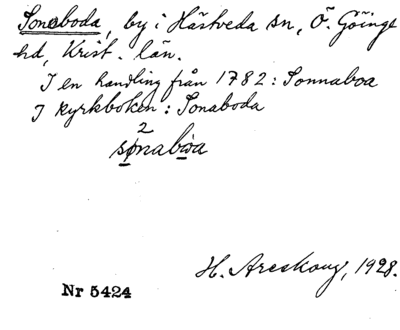 Sonaboda, by i Hästveda sn, Ö. Göinge
hd, Krist. län.
I en handling från 1782: Sonnaboa
I kyrkboken: Sonaboda
2
sonaboa
H. Areskoug, 1928.
Nr 5424